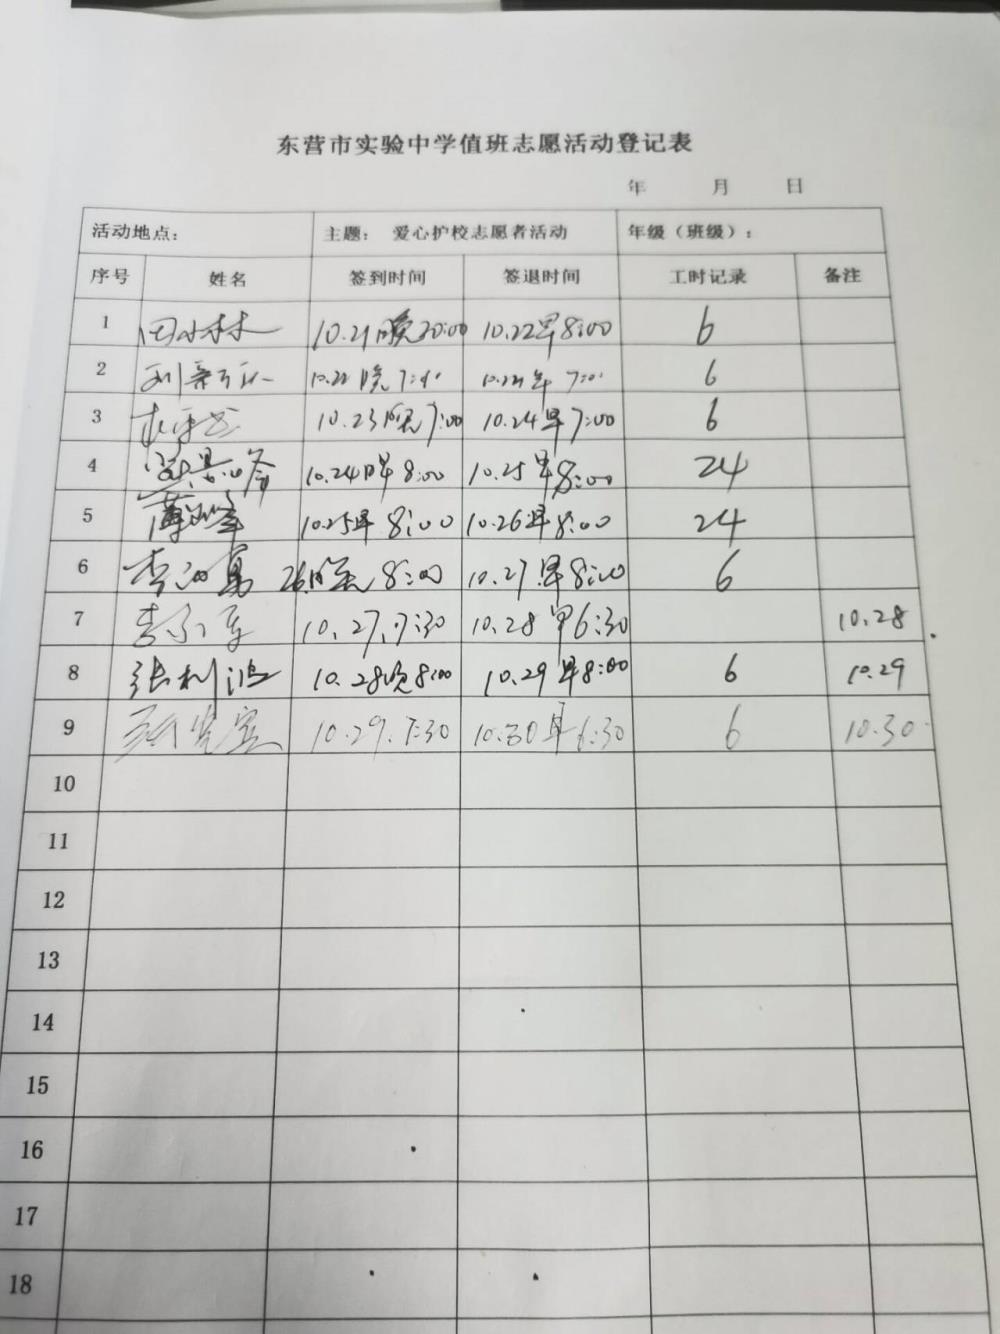 东营市实验中学值班志愿活动登记表
年 月 日
活动地点： 主题： 爱心护校志愿者活动 年级（班级）：
序号 姓名 签到时间 签退时间 工时记录 备注
1 田小林 10.21晚20:00 10.22早8:00 6
2 10.22晚7:00 7:00 6
3 10.23晚7:00 10.24早7:00 6
4 10.24早8:00 10.25早8:00 24
5 10.25早8:00 10.26早8:00 24
6 26晚8:00 10.27早8:00 6
7 10.27.7:30 10.28早6:30 10.28
8 张利波 10.28晚8:00 10.29早8:00 6 10.29
9 10.29.7:30 10.30早6:30 6 10.30
10
11
12
13
14
15
16
17
18